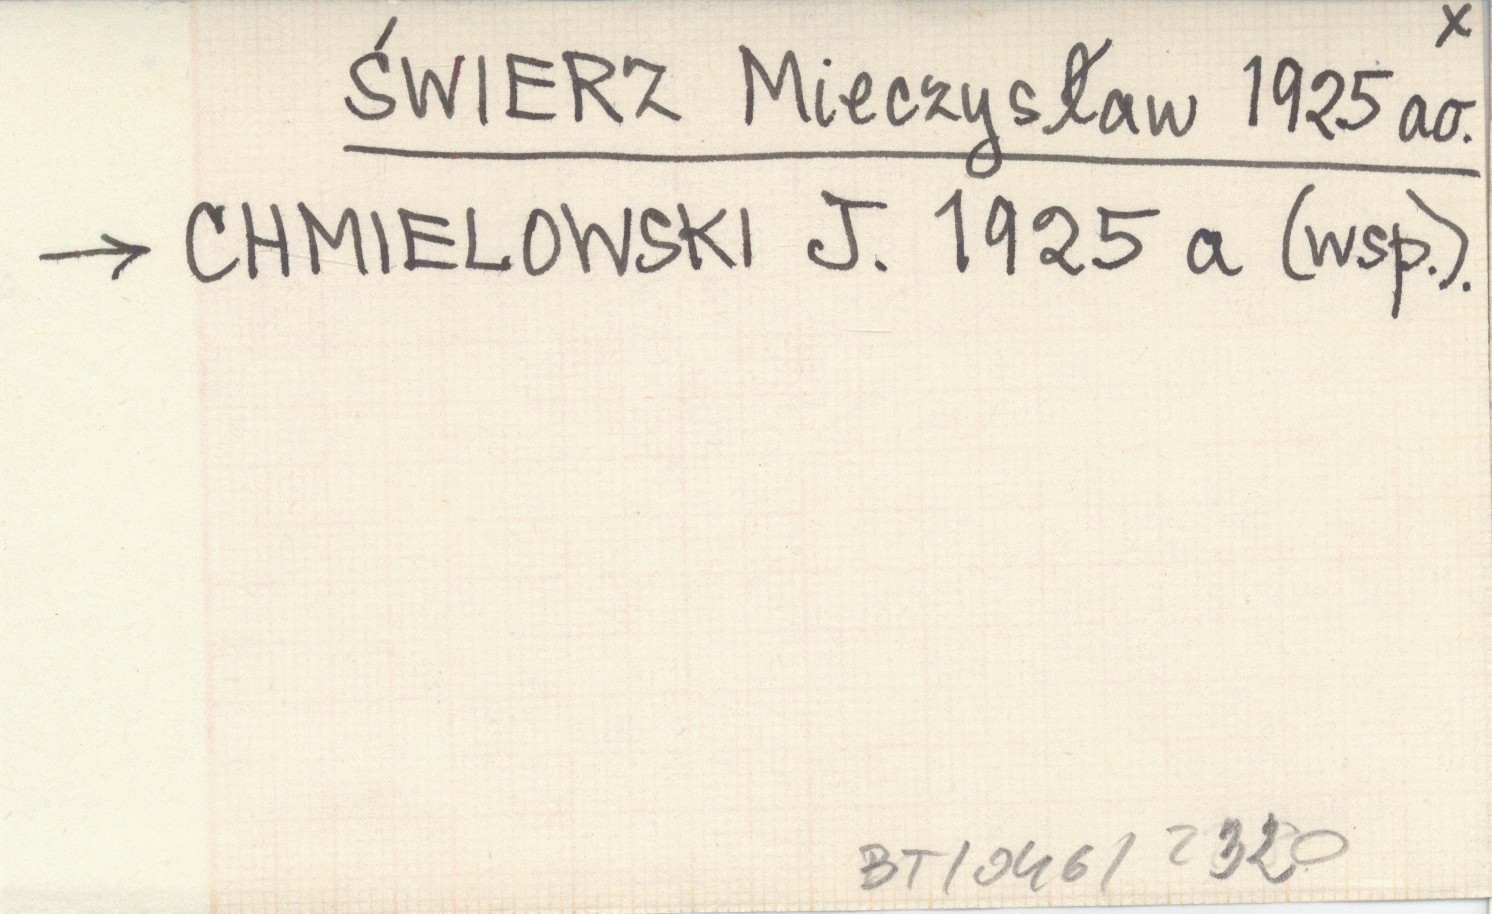 x
ŚWIERZ Mieczysław 1925 ao.
→ CHMIELOWSKI J. 1925 a (wsp.).
BT/046/2320